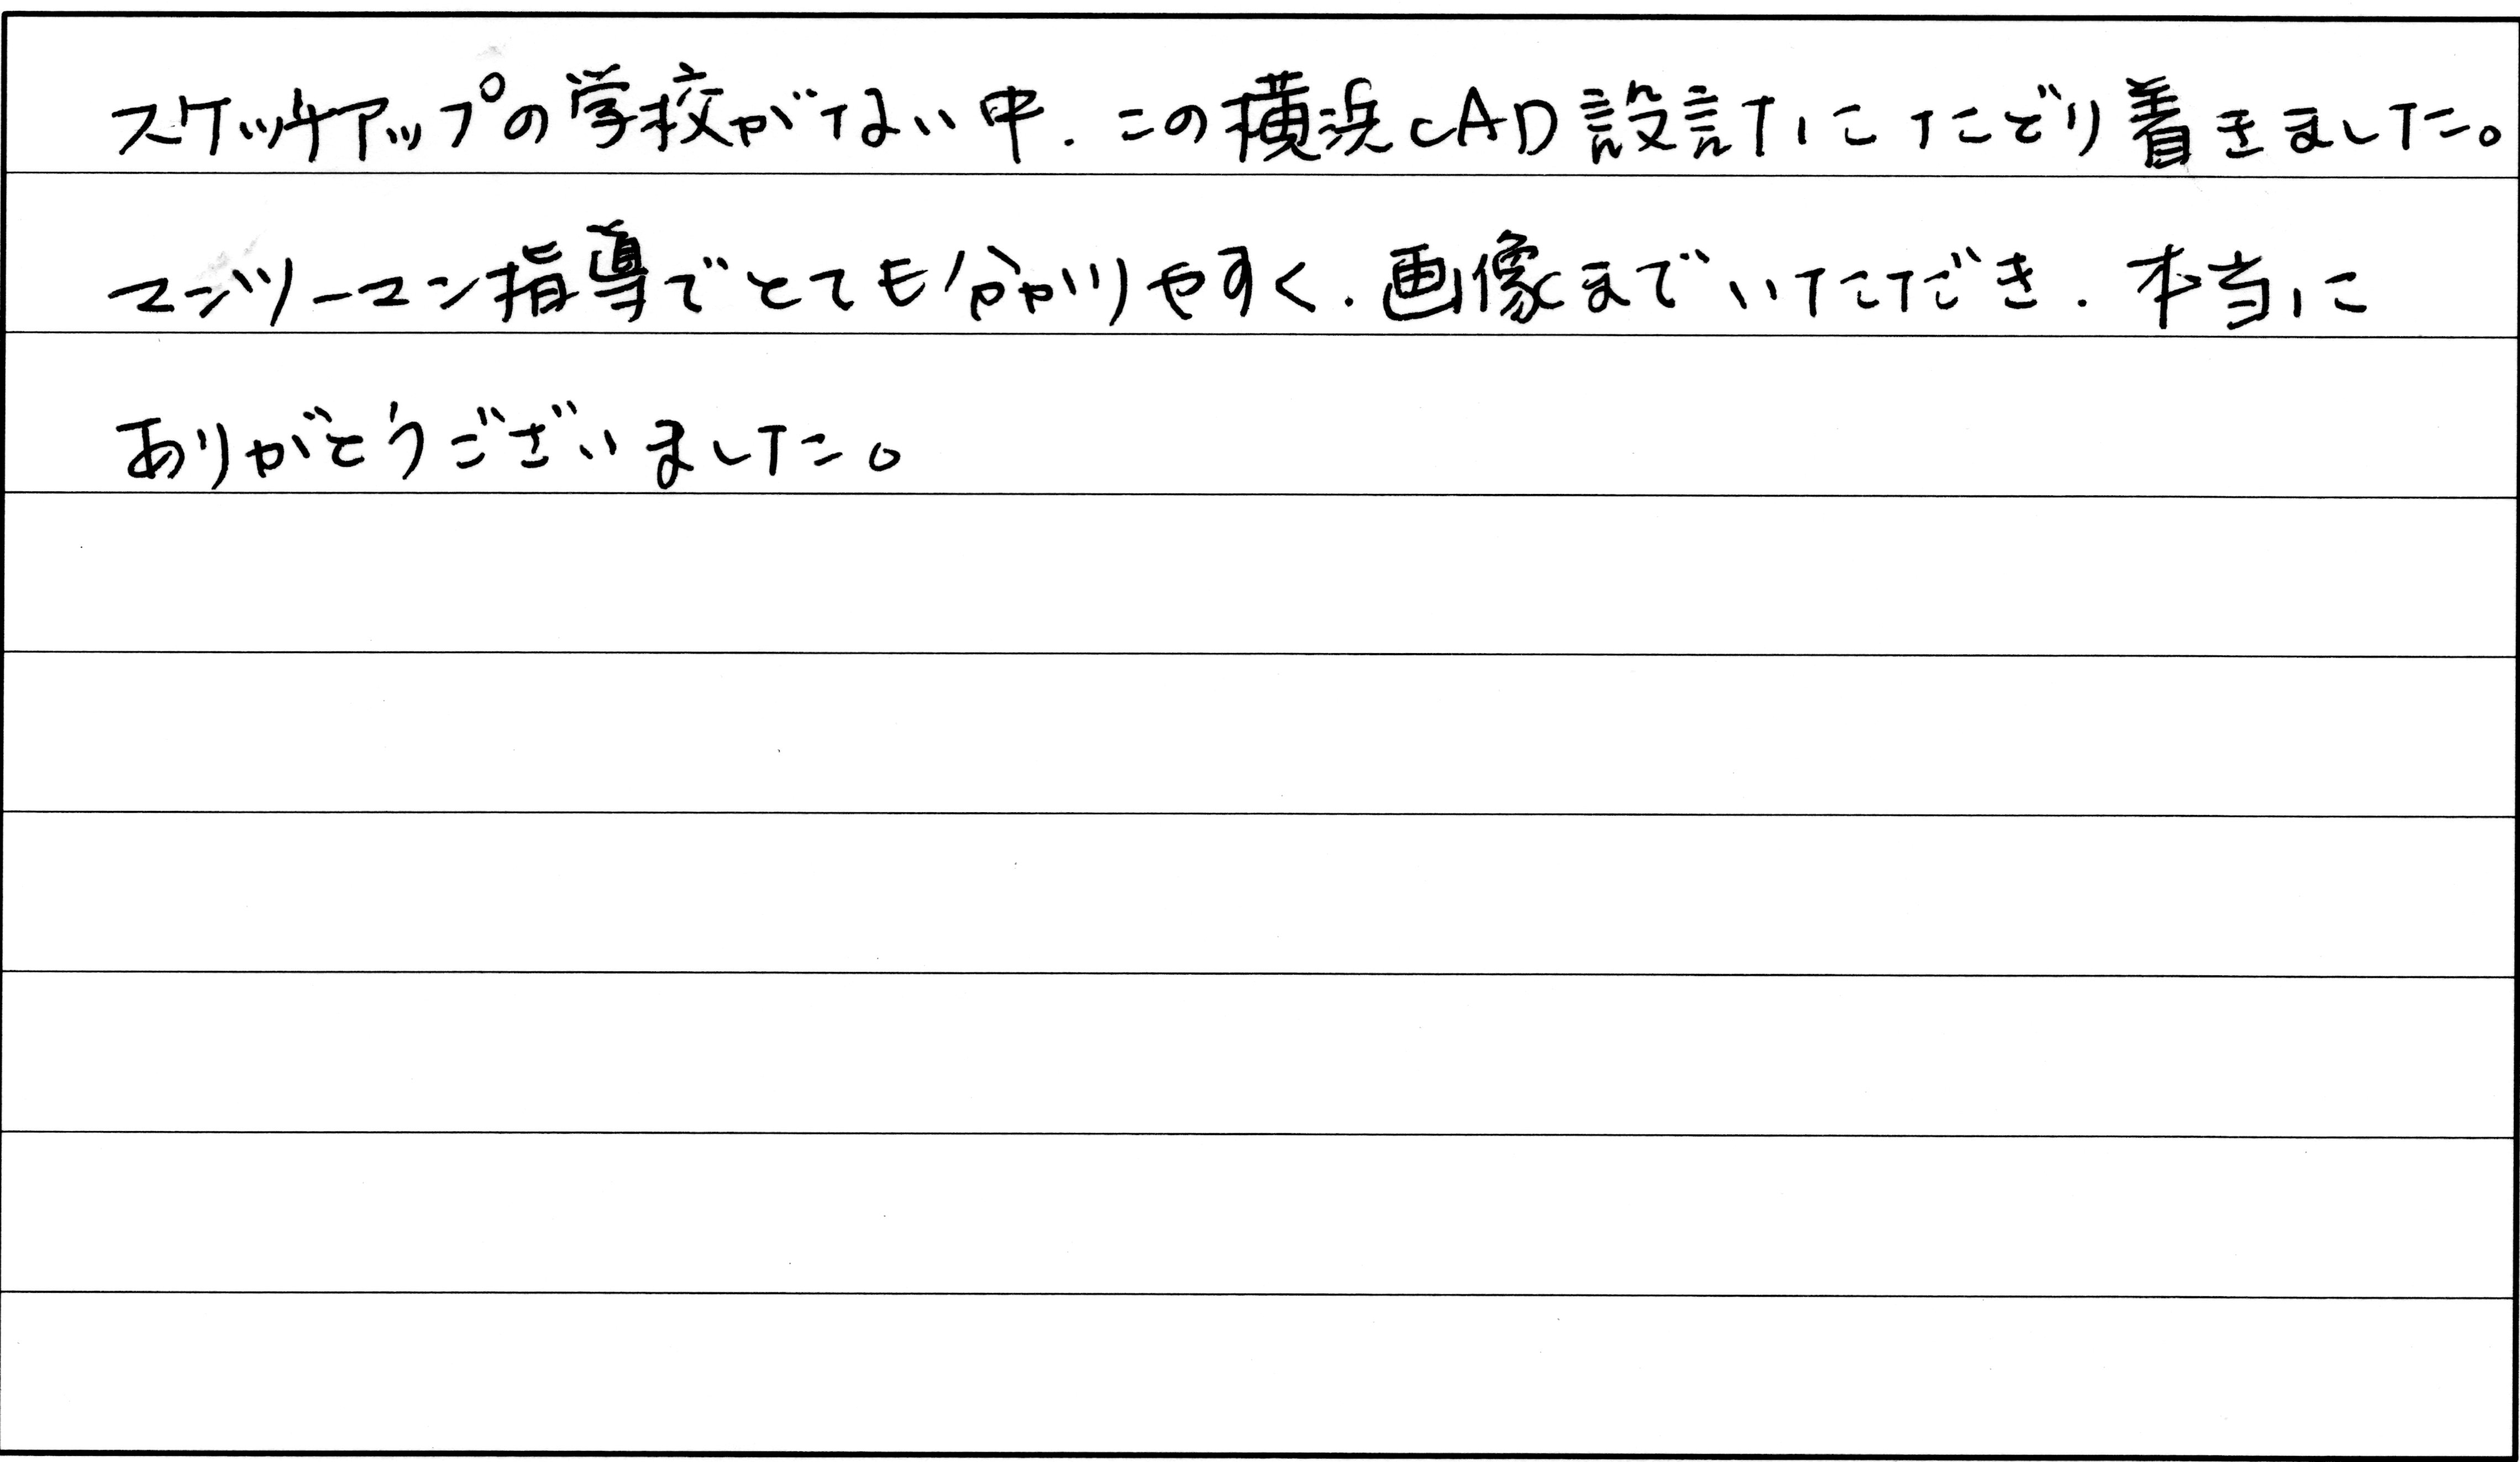 スケッチアップの学校がない中、この横浜CAD設計にたどり着きました。
マンツーマン指導でとても分かりやすく、画像までいただき、本当に
ありがとうございました。